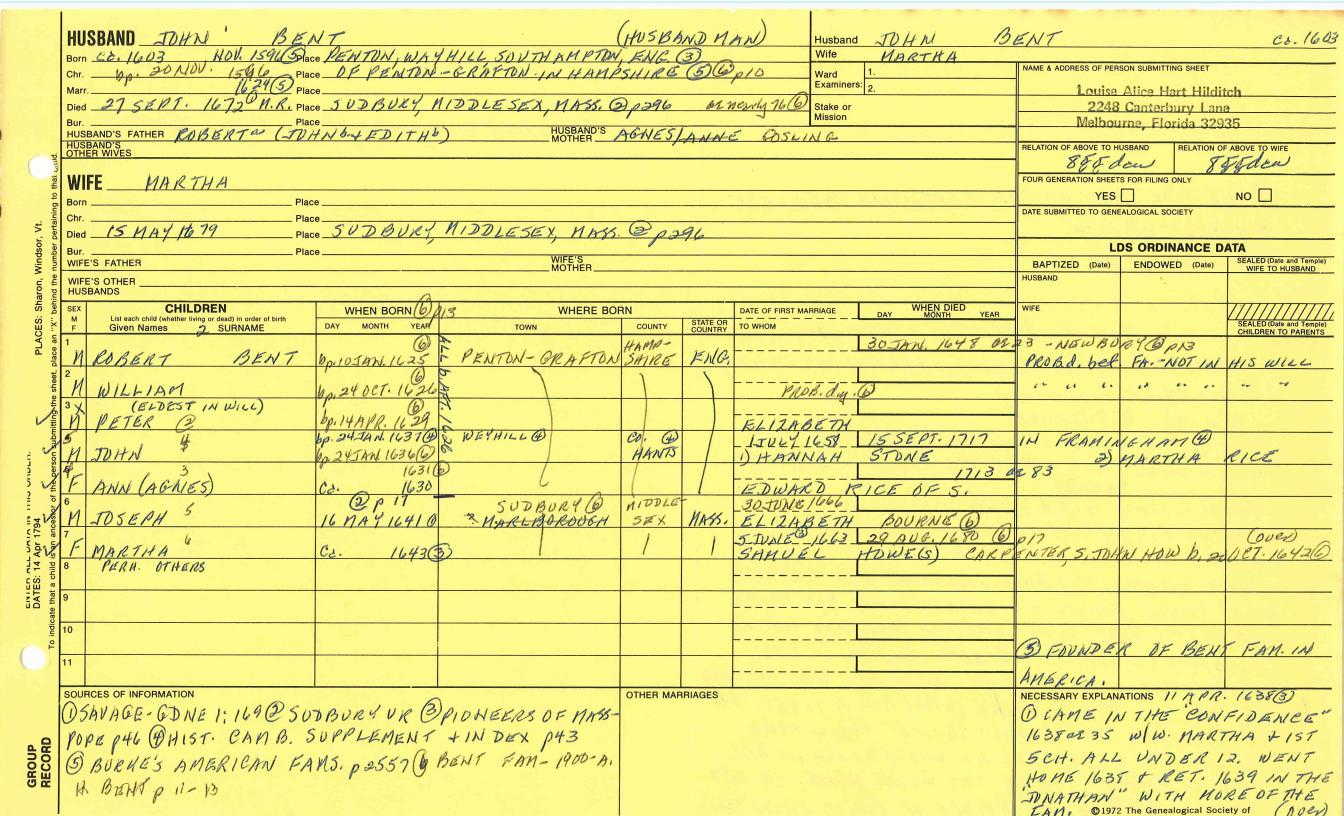 HUSBAND JOHN BENT (HUSBANDMAN)
Born ca. 1603 NOV. 1596 ⑤ Place PENTON, WAYHILL SOUTHAMPTON, ENG ③
Chr. bp. 20 NOV. 1596 Place OF PENTON-GRAFTON IN HAMPSHIRE ⑤ ⑥ p10
Marr. 1624 ⑤ Place
Died 27 SEPT. 1672 ① N.R. Place SUDBURY, MIDDLESEX, MASS. ② p296 ae nearly 76 ⑥
Bur. Place
HUSBAND'S FATHER ROBERT (JOHN b + EDITH b) HUSBAND'S MOTHER AGNES/ANNE GOSLING
HUSBAND'S OTHER WIVES
Husband JOHN BENT ca. 1603
Wife MARTHA
Ward Examiners: 1.
2.
Stake or Mission
NAME & ADDRESS OF PERSON SUBMITTING SHEET
Louise Alice Hart Hilditch
2248 Canterbury Lane
Melbourne, Florida 32935
RELATION OF ABOVE TO HUSBAND RELATION OF ABOVE TO WIFE
8ggdau 8ggdau
FOUR GENERATION SHEETS FOR FILING ONLY
YES NO
DATE SUBMITTED TO GENEALOGICAL SOCIETY
WIFE MARTHA
Born Place
Chr. Place
Died 15 MAY 1679 Place SUDBURY, MIDDLESEX, MASS. ② p296
Bur. Place
WIFE'S FATHER WIFE'S MOTHER
WIFE'S OTHER HUSBANDS
LDS ORDINANCE DATA
BAPTIZED (Date) ENDOWED (Date) SEALED (Date and Temple) WIFE TO HUSBAND
HUSBAND
WIFE
SEALED (Date and Temple) CHILDREN TO PARENTS
SEX M F
CHILDREN
List each child (whether living or dead) in order of birth
Given Names SURNAME
WHEN BORN ⑥ p13
DAY MONTH YEAR
WHERE BORN
TOWN COUNTY STATE OR COUNTRY
DATE OF FIRST MARRIAGE
TO WHOM
WHEN DIED
DAY MONTH YEAR
1 M ROBERT BENT bp. 10 JAN. 1625 ⑥ PENTON-GRAFTON HAMP-SHIRE ENG. 30 JAN. 1648 ae 23 - NEWBURY ⑥ p13
PROB d. bef FA. - NOT IN HIS WILL
2 M WILLIAM bp. 24 OCT. 1626 ⑥ PROB. d.y. ⑥ " " " " "
3 X (ELDEST IN WILL)
M PETER ② bp. 14 APR. 1629 ⑥ ELIZABETH
5 4 M JOHN bp. 24 JAN. 1637 ④ WEYHILL ④ CO. ④ HANTS 1 JULY 1658 15 SEPT. 1717 IN FRAMINGHAM ④
bp. 24 JAN 1636 ⑥ 1) HANNAH STONE 2) MARTHA RICE
3 F ANN (AGNES) 1631 ⑥ ca. 1630 1713 ae 83
EDWARD RICE OF S.
6 5 M JOSEPH ② p 17 16 MAY 1641 SUDBURY ⑥ MARLBOROUGH MIDDLE-SEX MASS. 30 JUNE 1666
ELIZABETH BOURNE ⑥
7 6 F MARTHA ca. 1643 ③ 5 JUNE 1663 29 AUG. 1680 ⑥ p17 (over)
SAMUEL HOWE(S) CARPENTER, S. JOHN HOW b. 20 OCT. 1642 ⑥
8 PERH. OTHERS
9
10
11
⑤ FOUNDER OF BENT FAM. IN
AMERICA.
SOURCES OF INFORMATION
① SAVAGE-GDNE 1:169 ② SUDBURY VR ③ PIONEERS OF MASS-
POPE p46 ④ HIST. CAMB. SUPPLEMENT + INDEX p43
⑤ BURKE'S AMERICAN FAMS. p2557 ⑥ BENT FAM-1900-A.
H. BENT p 11-13
OTHER MARRIAGES
NECESSARY EXPLANATIONS 11 APR. 1638 ③
① CAME IN THE "CONFIDENCE"
1638 ae 35 W/W. MARTHA + 1ST
5 CH. ALL UNDER 12. WENT
HOME 1635 & RET. 1639 IN THE
"JONATHAN" WITH MORE OF THE
FAM. (over)
©1972 The Genealogical Society of
PLACES: Sharon, Windsor, Vt.
ENTER ALL DATA IN THIS ORDER:
DATES: 14 Apr 1794
To indicate that a child is an ancestor of the person submitting the sheet, place an "X" behind the number pertaining to that child.
GROUP RECORD